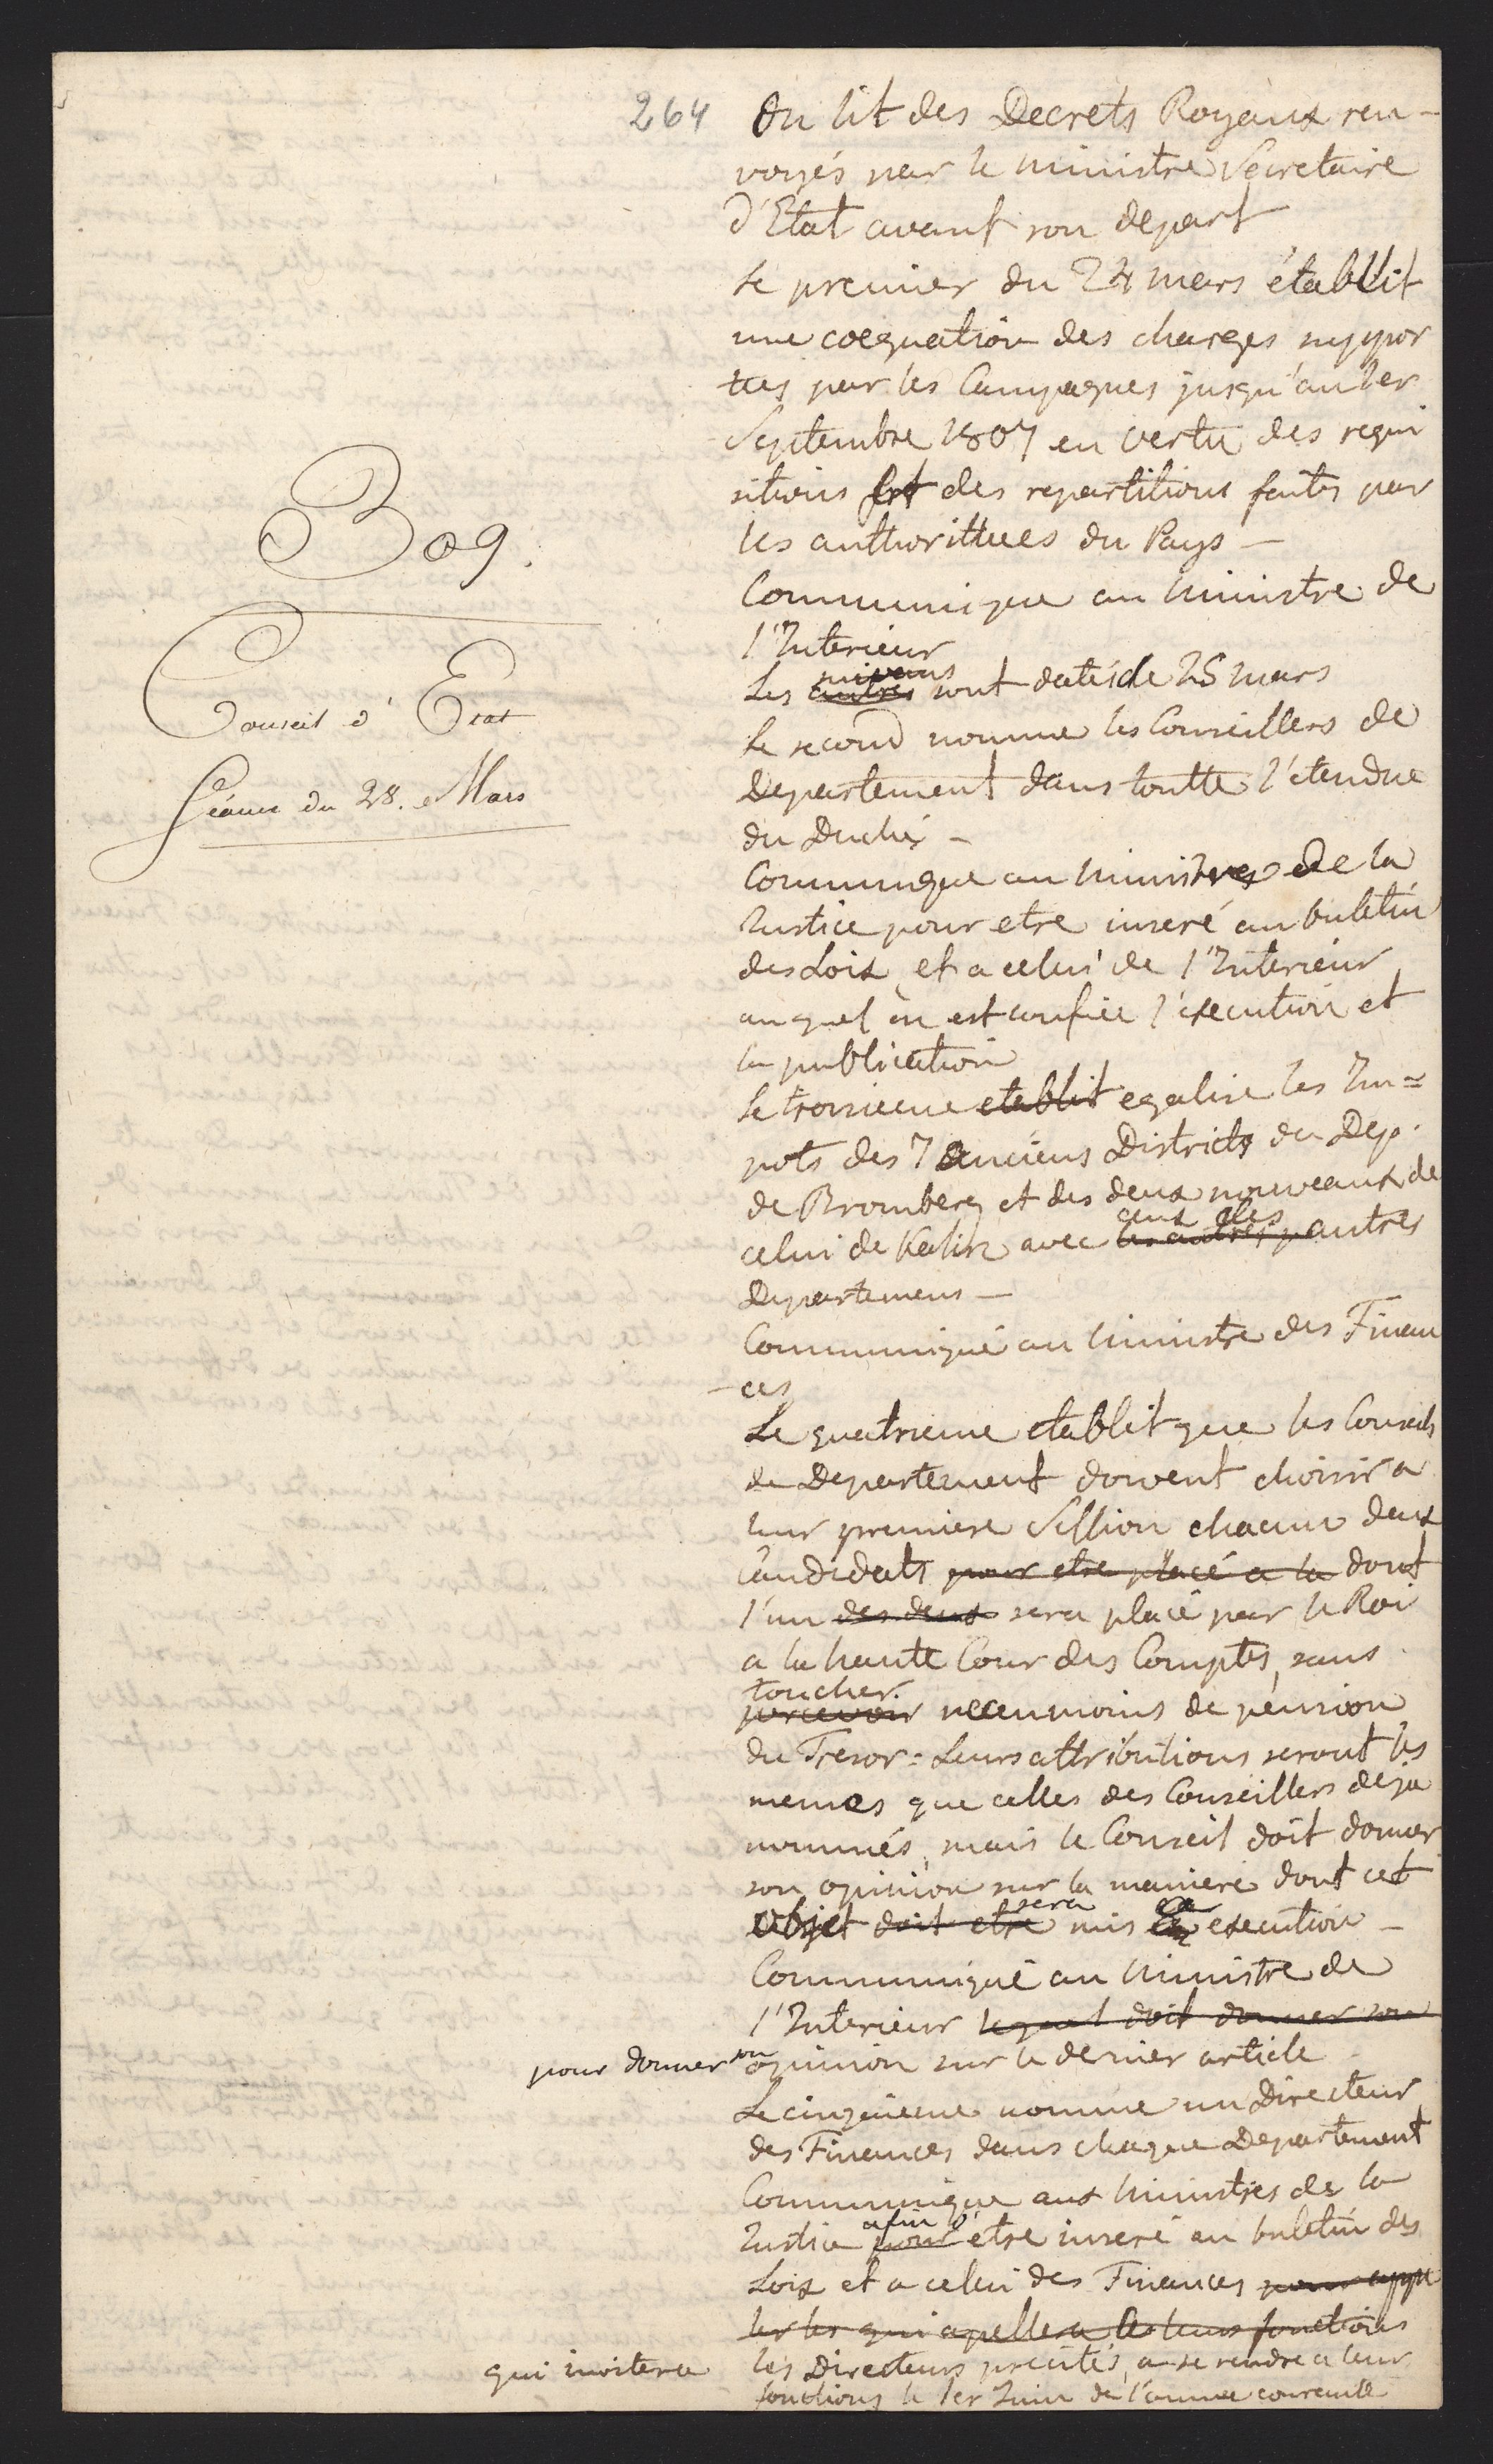 264
Bog.
Conseil d'Etat
Séance du 28. Mars
On lit des Decrets Royaux ren-
voyés par le Ministre Secretaire
d'Etat avant son depart
Le premier du 24 mars établit
une coequation des charges suppor
tées par les Campagnes jusqu'au 1er
Septembre 1807 en vertu des requi
sitions et des repartitions faites par
les authorittees du Pays —
Communique au Ministre de
l'Interieur
suivans
Les autres sont datés de 25 mars
Le second nomme les Conseillers de
Departement dans toutte l'etendue
du Duché —
Communique au Ministre de la
Justice pour etre inseré au buletin
des Loix et a celui de l'Interieur
auquel en est confiée l'execution et
la publication
Le troisieme etablit egalise les Im=
pots des 7 anciens Districts du Dep.
de Bromberg et des deux nouveaux de
aux des
celui de Kalisz avec les autres autres
Departemens —
Communiqué au Ministre des Finan
-ces
Le quatrieme etablit que les Conseils
de Departement doivent choisir a
leur premiere Session chacun deux
candidats pour etre placé a la dont
l'un des deux sera placé par le Roi
a la haute Cour des Comptes, sans
toucher
percevoir neanmoins de pension
du Tresor = Leurs attributions seront les
memes que celles des Conseillers deja
nommés, mais le Conseil doit donner
son opinion sur la maniere dont cet
sera
objet doit etre mis en execution —
Communiqué au Ministre de
l'Interieur lequel doit donner son
pour donner son opinion sur le dernier article
Le cinquieme nomme un Directeur
des Finances dans chaque Departement
Communique aux Ministres de la
afin d'
Justice pour etre inseré au buletin des
Loix et a celui des Finances pour appe
ler les qui apellera les leurs fonctions
qui invitera les Directeurs precités, a se rendre a leur
fonctions le 1er Juin de l'annee courante